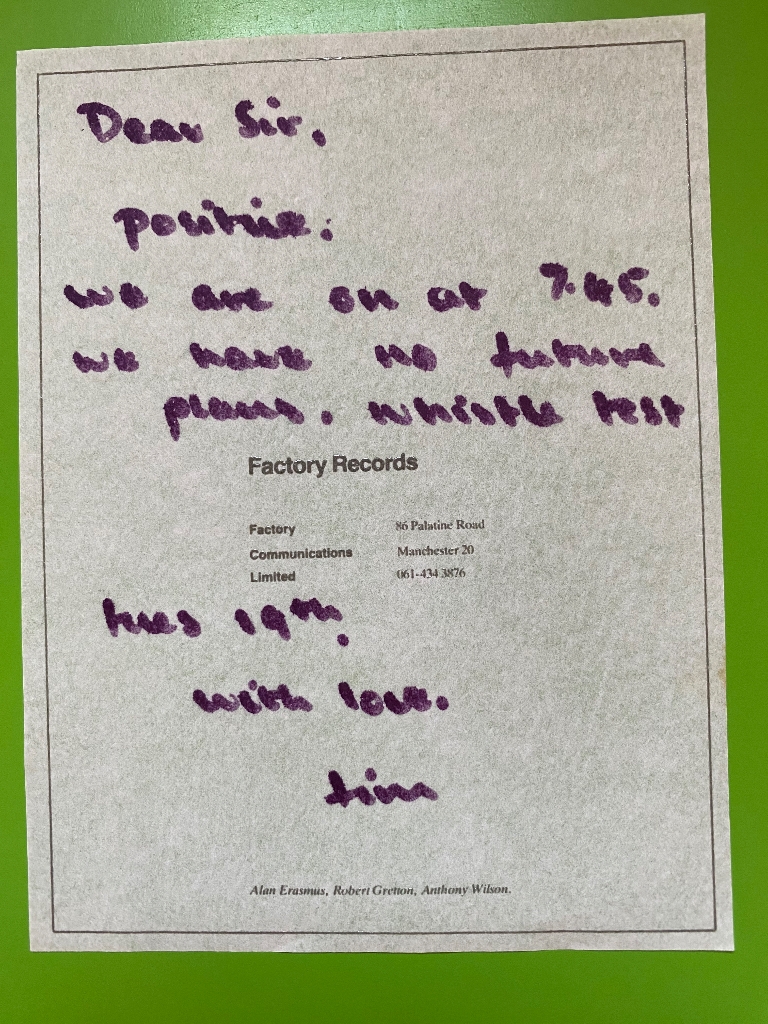 Dear Sir.
positive.
we are on at 7.45.
we have no future
plans. whistle test
Factory Records
Factory 86 Palatine Road
Communications Manchester 20
Limited 061-434 3876
tues 19th.
with love.
tim
Alan Erasmus, Robert Gretton, Anthony Wilson.